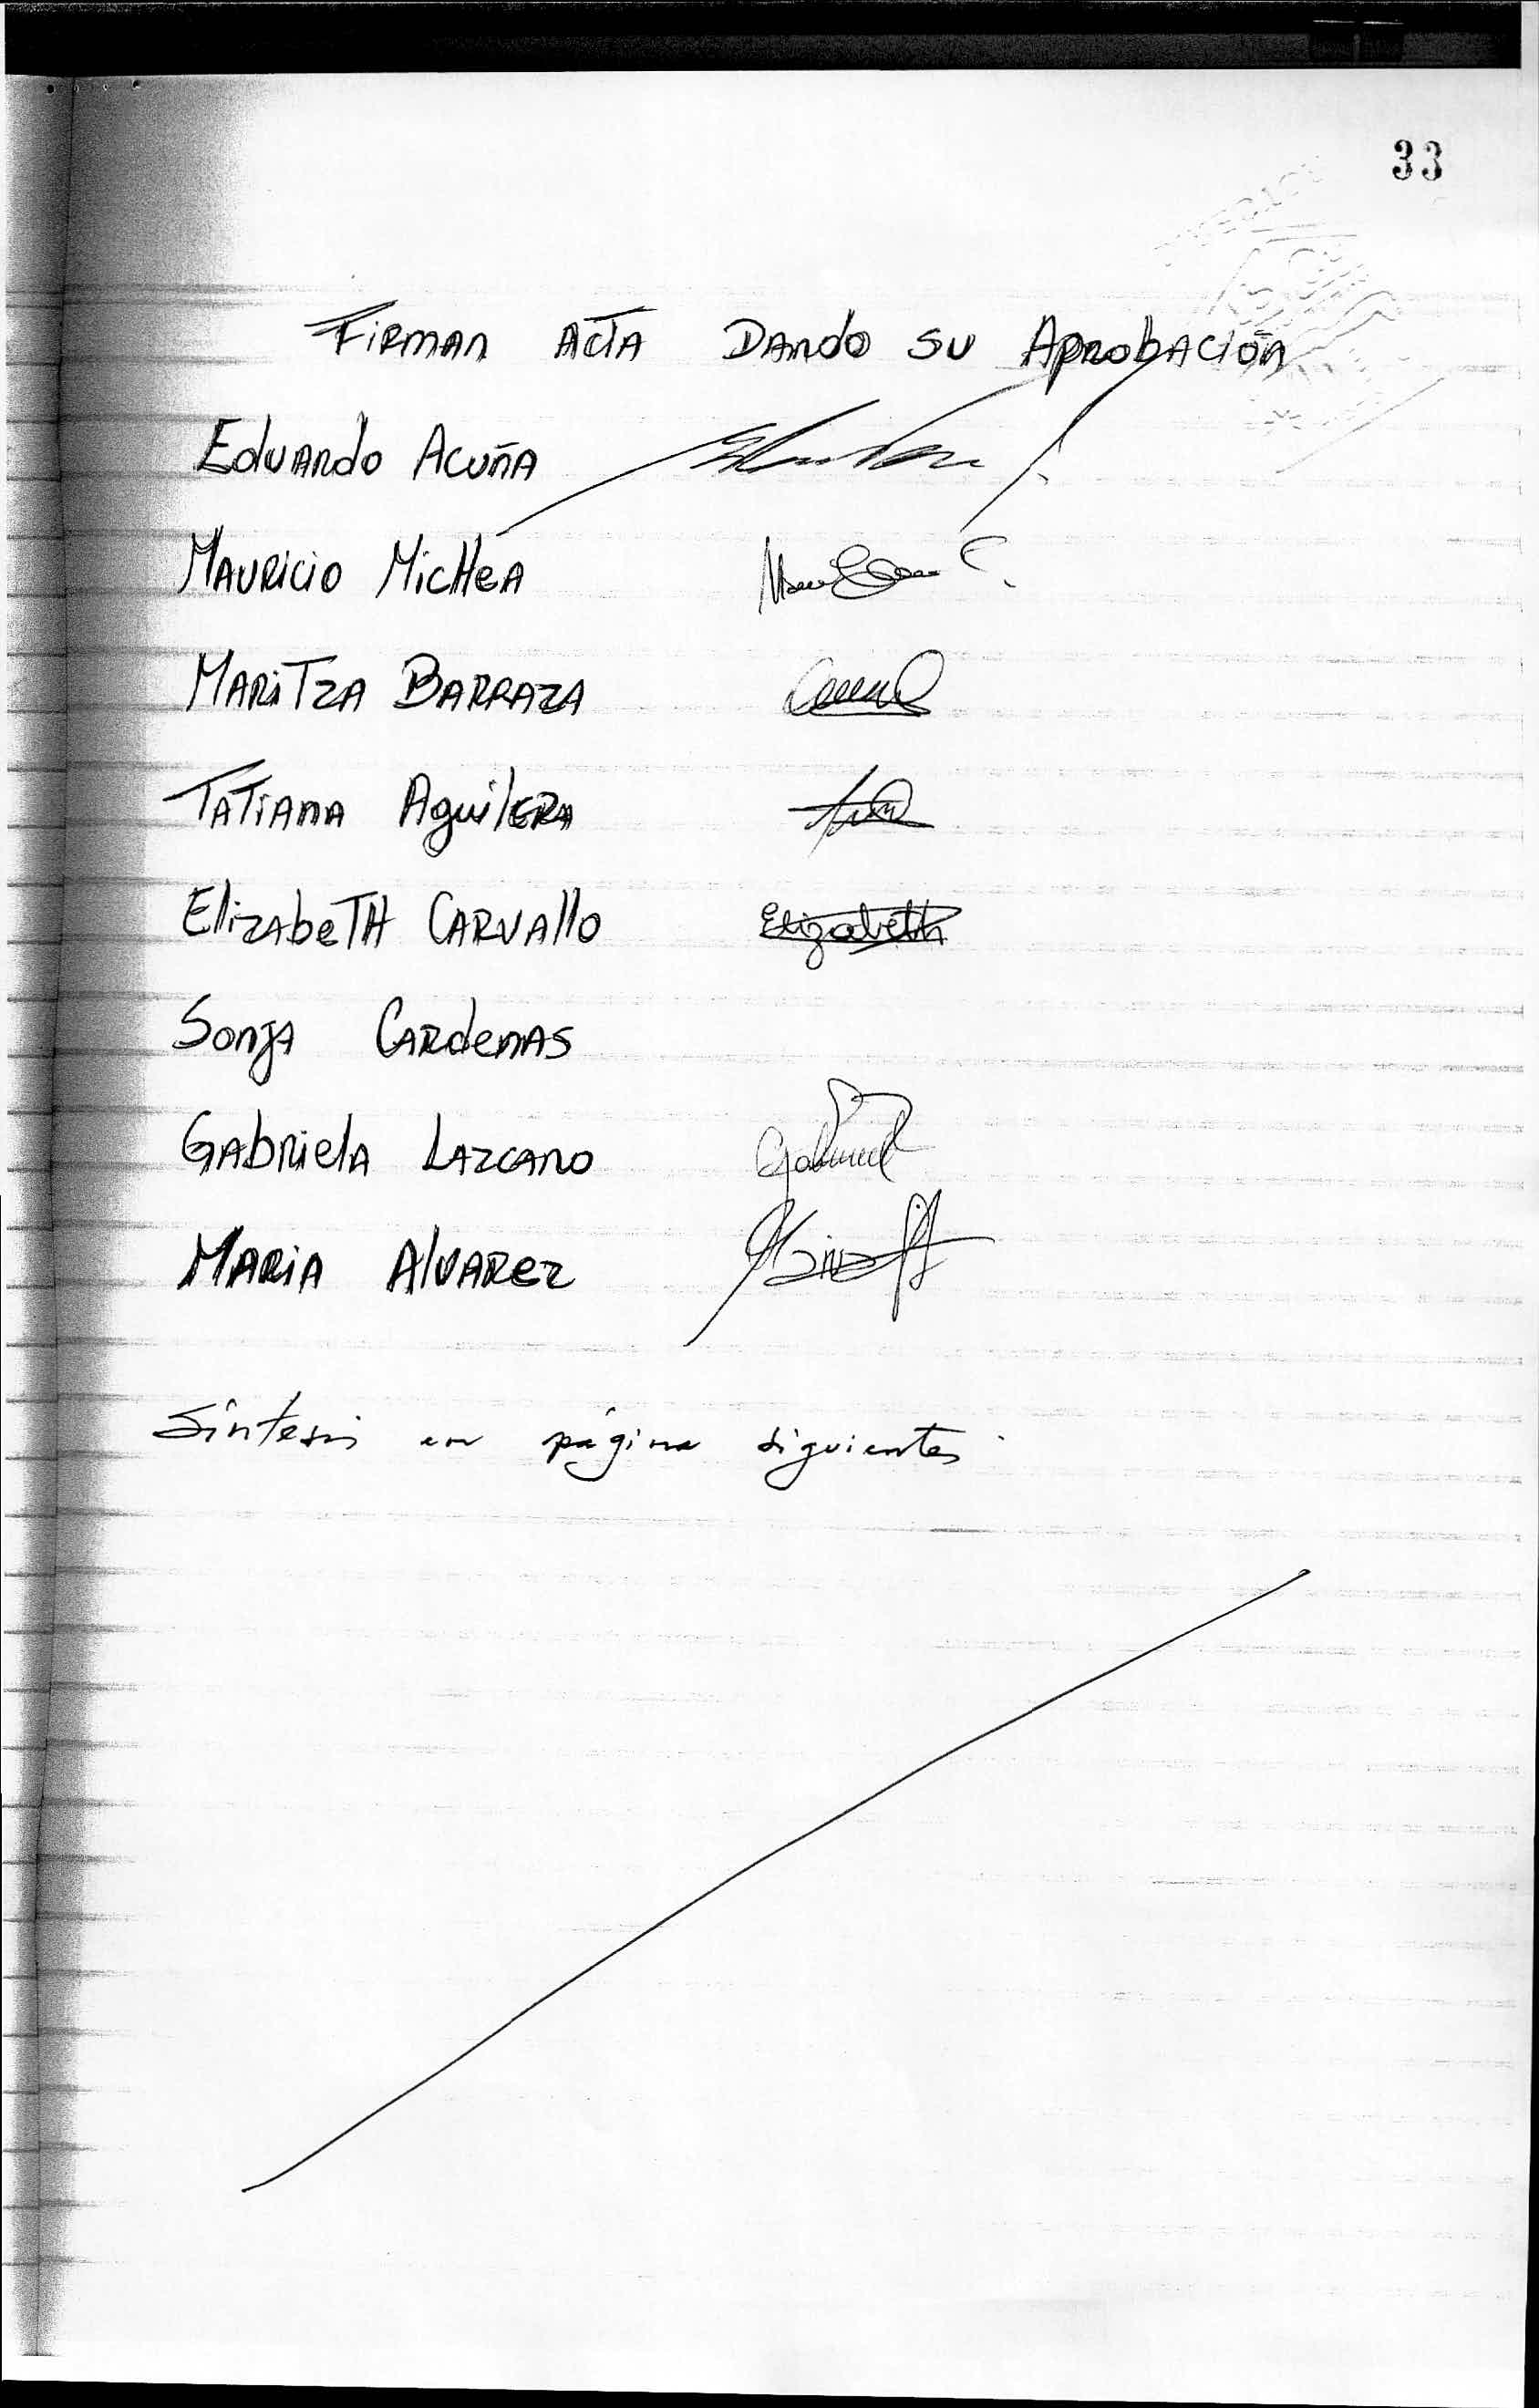 33
Firman Acta Dando su Aprobación
Eduardo Acuña
Mauricio Michea
Maritza Barraza
Tatiana Aguilera
Elizabeth Carvallo Elizabeth
Sonja Cardenas
Gabriela Lazcano
Maria Alvarez
Síntesis en página siguientes